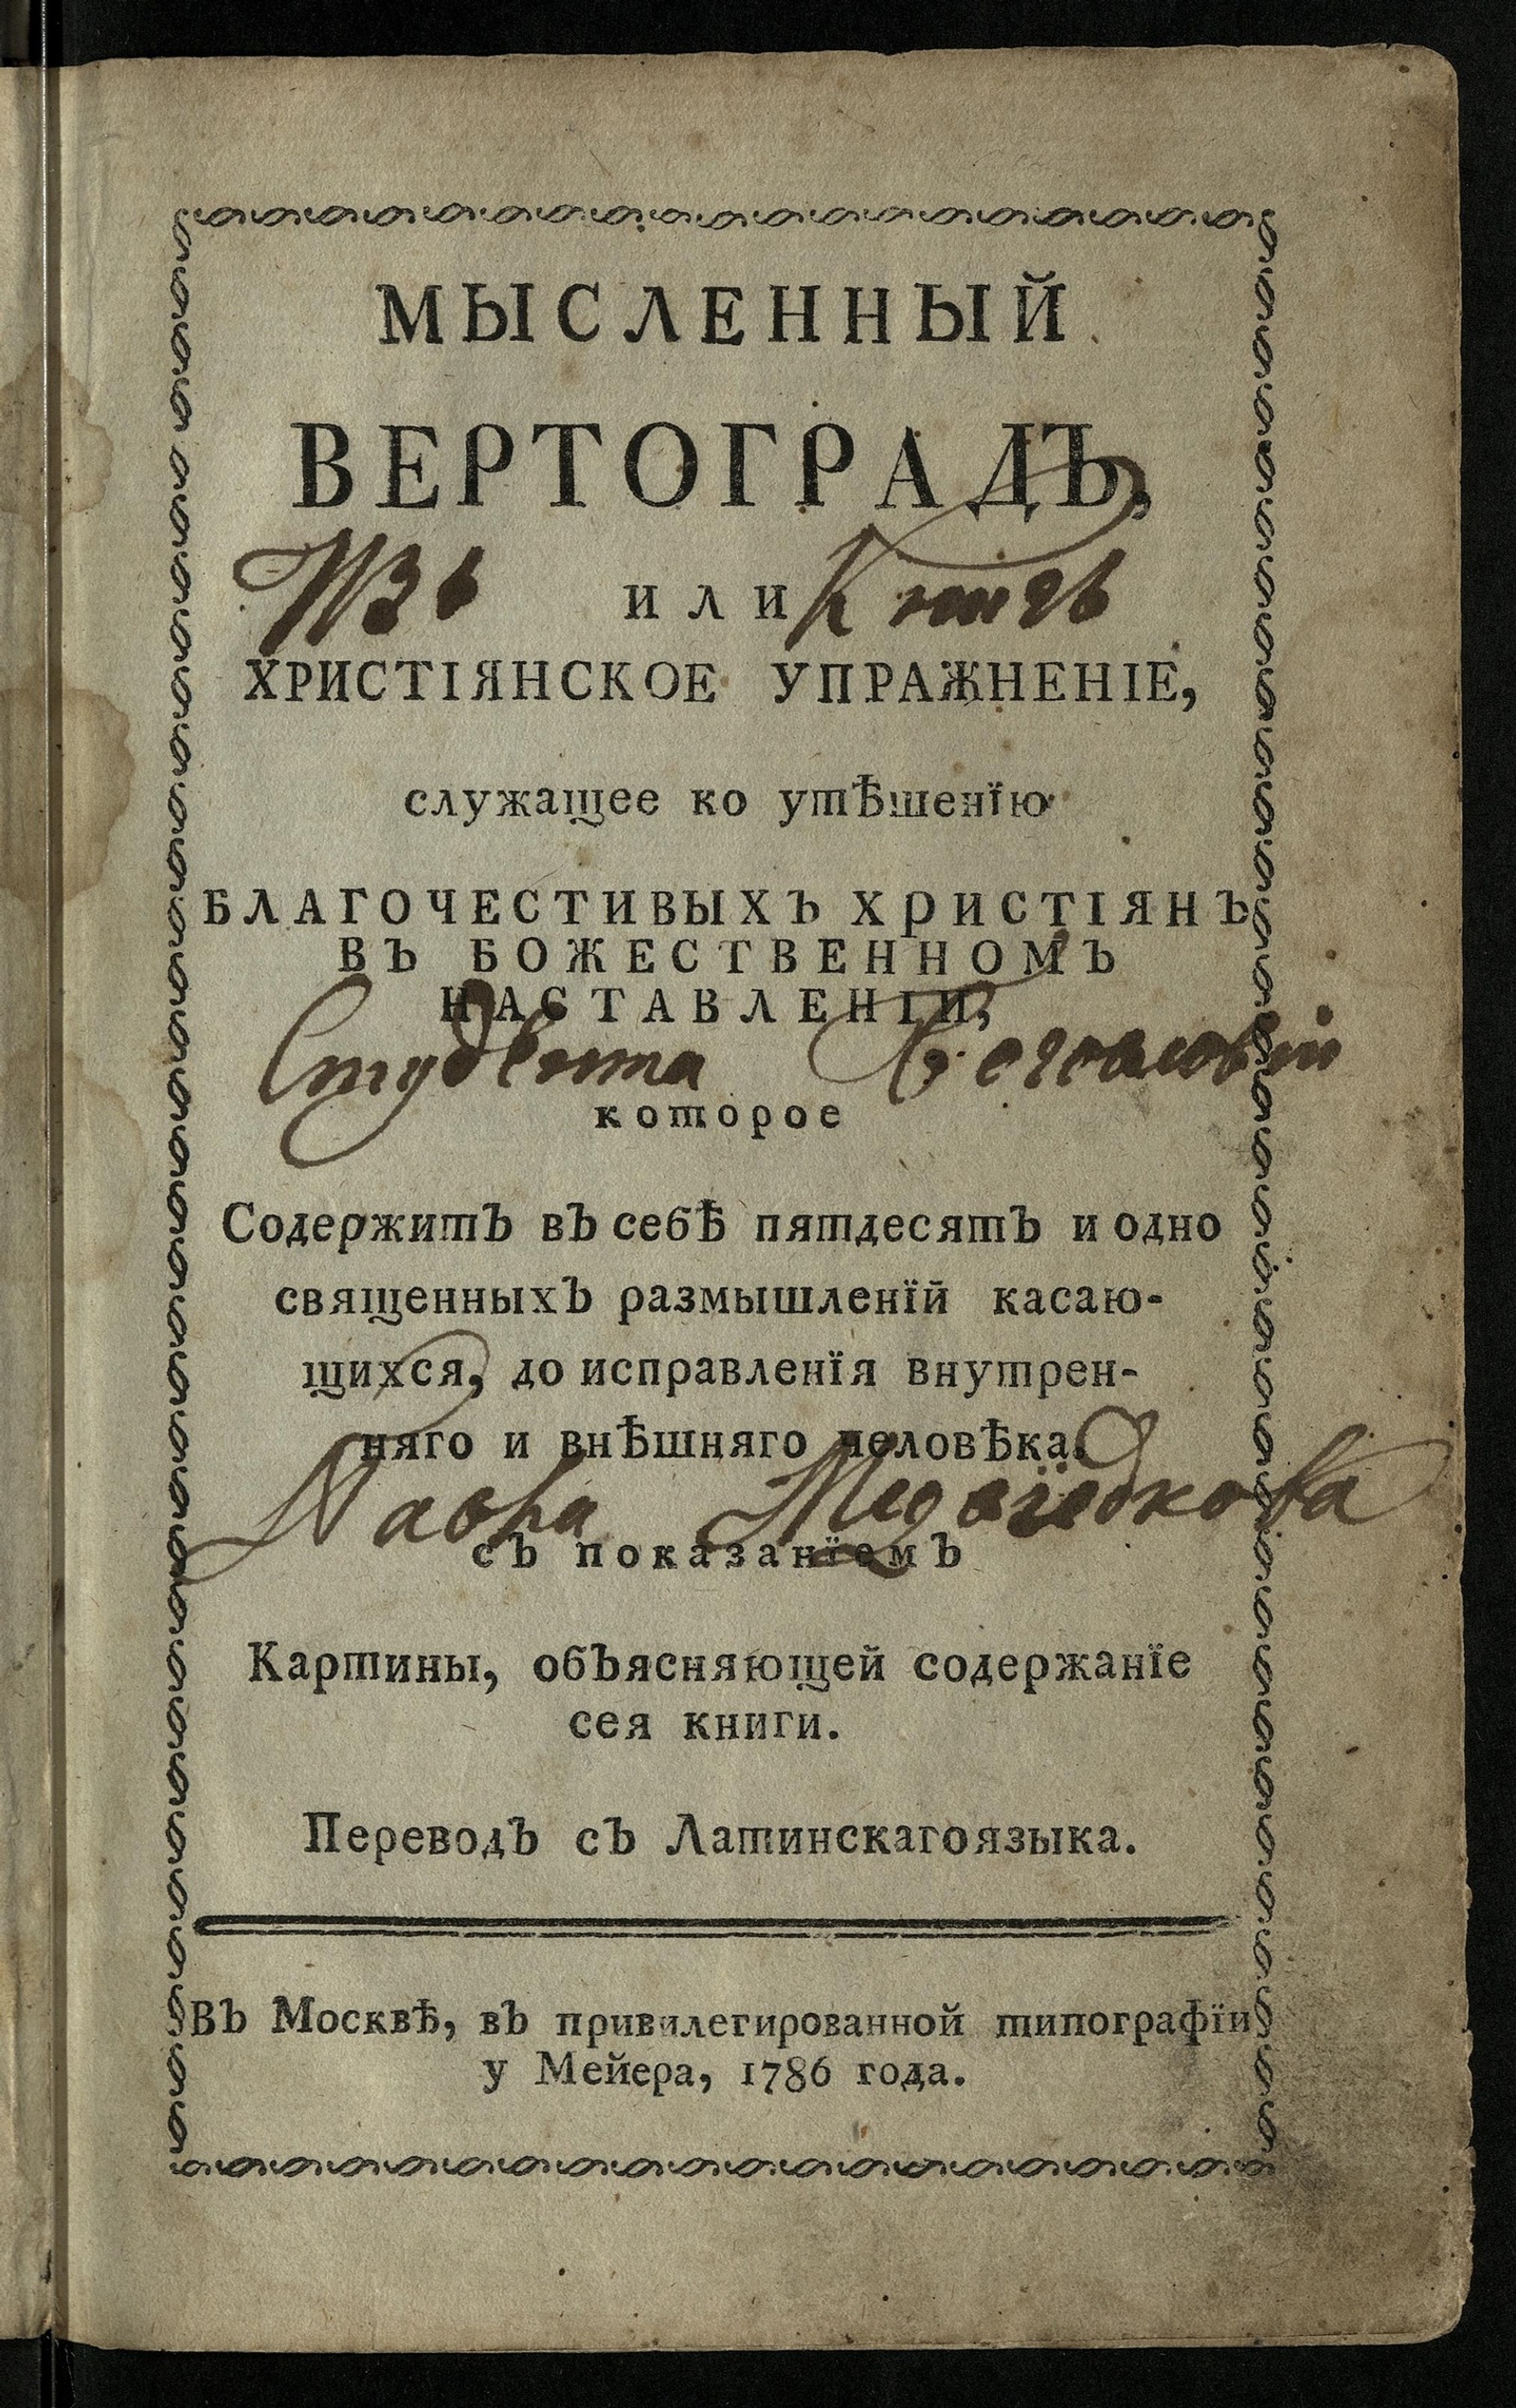 МЫСЛЕННЫЙ
ВЕРТОГРАДЪ,
Изъ или Книгъ
ХРИСТІЯНСКОЕ УПРАЖНЕНІЕ,
служащее ко утѣшенїю
БЛАГОЧЕСТИВЫХЪ ХРИСТІЯНЪ
ВЪ БОЖЕСТВЕННОМЪ
НАСТАВЛЕНІИ,
Студента
которое
Содержитъ въ себѣ пятдесятъ и одно
священныхъ размышленїй касаю-
щихся, до исправленїя внутрен-
няго и внѣшняго человѣка.
Лавра
съ показанїемъ
Картины, объясняющей содержанїе
сея книги.
Переводъ съ Латинскагоязыка.
Въ Москвѣ, въ привилегированной типографїи
у Мейера, 1786 года.